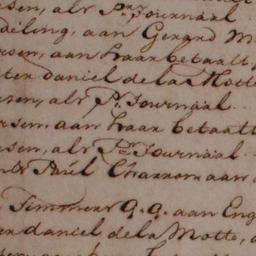 sen, als Pr. Journaal
deling, aan Gerard M
sen, aan haar betaalt
ten daniel de la Motte
sen, als Pr. Journaal
sen, aan haar betaalt
sen, als Pr. Journaal
Paul Charron aan
Timmers G.G. aan Eng
en daniel de la Motte,